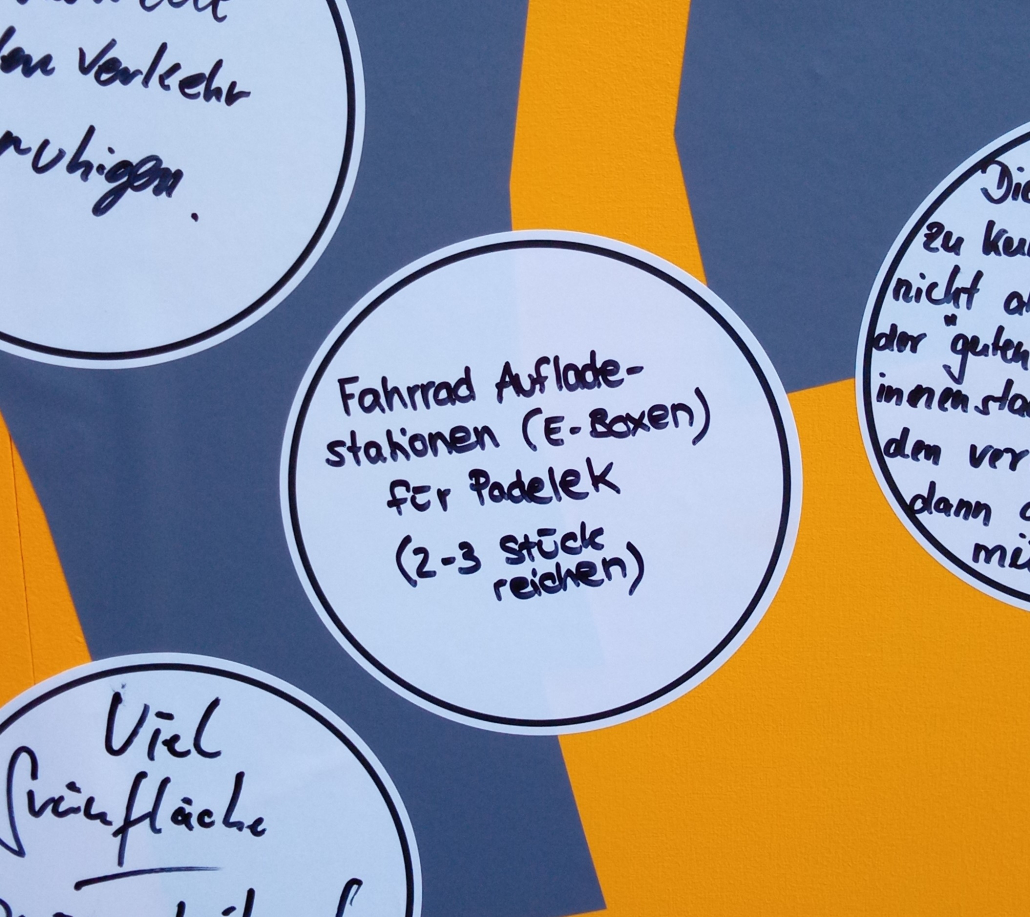 Verkehr
ruhigen.
Fahrrad Auflade-
stationen (E-Boxen)
für Padelek
(2-3 Stück
reichen)
Die
zu
nicht
der "guten
den ver
dann
Viel
Grünfläche